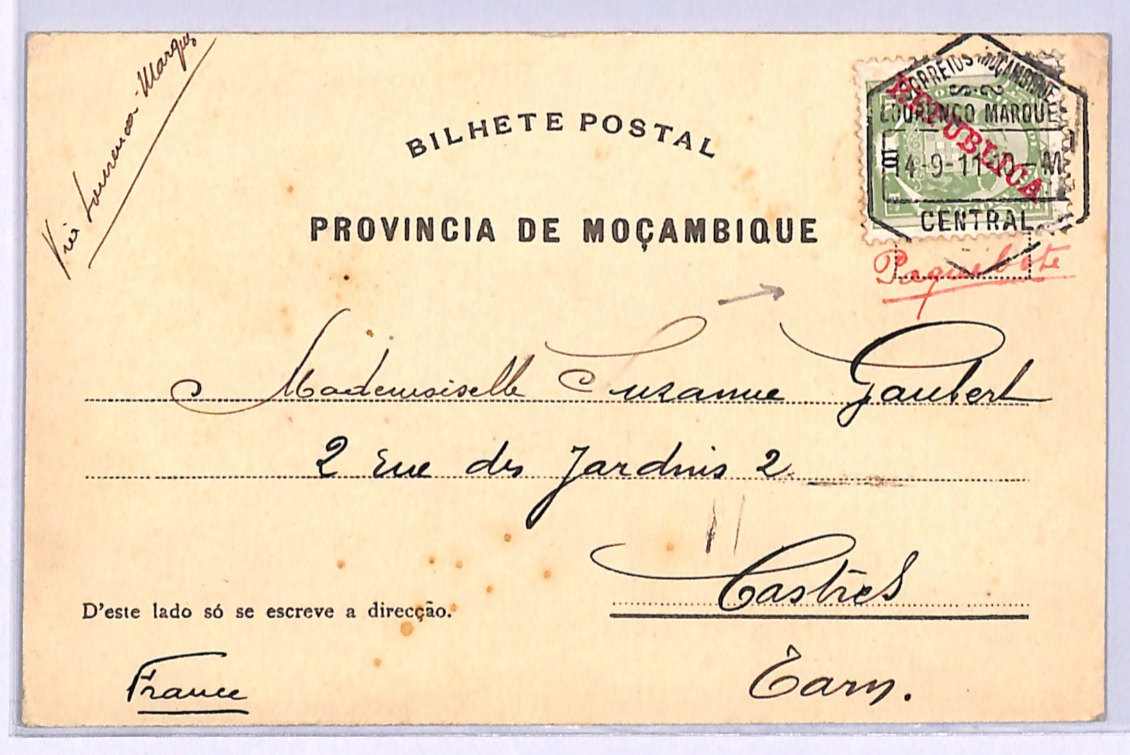 Via Lourenco-Marques
BILHETE POSTAL
PROVINCIA DE MOÇAMBIQUE
REPUBLICA
CORREIOS MOÇAMBIQUE
LOURENÇO MARQUES
14-9-11
CENTRAL
Paquebote
Mademoiselle Suzanne Gaubert
2 Rue des Jardins 2
Castres
D'este lado só se escreve a direcção.
France
Tarn.